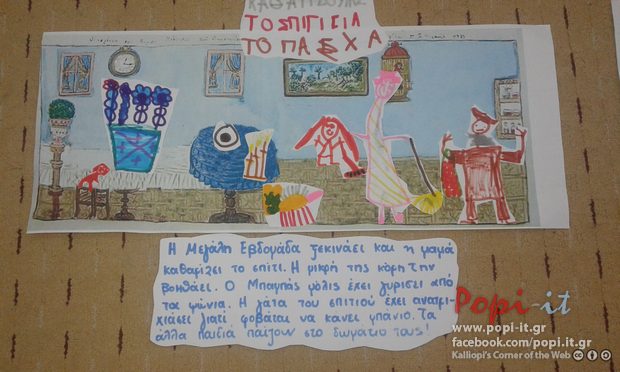 ΚΑΘΑΡΙΖΟΥΜΕ
ΤΟ ΣΠΙΤΙ ΓΙΑ
ΤΟ ΠΑΣΧΑ
Η Μεγάλη Εβδομάδα ξεκινάει και η μαμά
καθαρίζει το σπίτι. Η μικρή της κόρη την
βοηθάει. Ο Μπαμπάς μόλις έχει γυρίσει από
τα ψώνια. Η γάτα του σπιτιού έχει ανατρι-
χιάσει γιατί φοβάται να κάνει μπάνιο. Τα
άλλα παιδιά παίζουν στο δωμάτιο τους!
Popi-it
www.popi-it.gr
facebook.com/popi.it.gr
Kalliopi's Corner of the Web